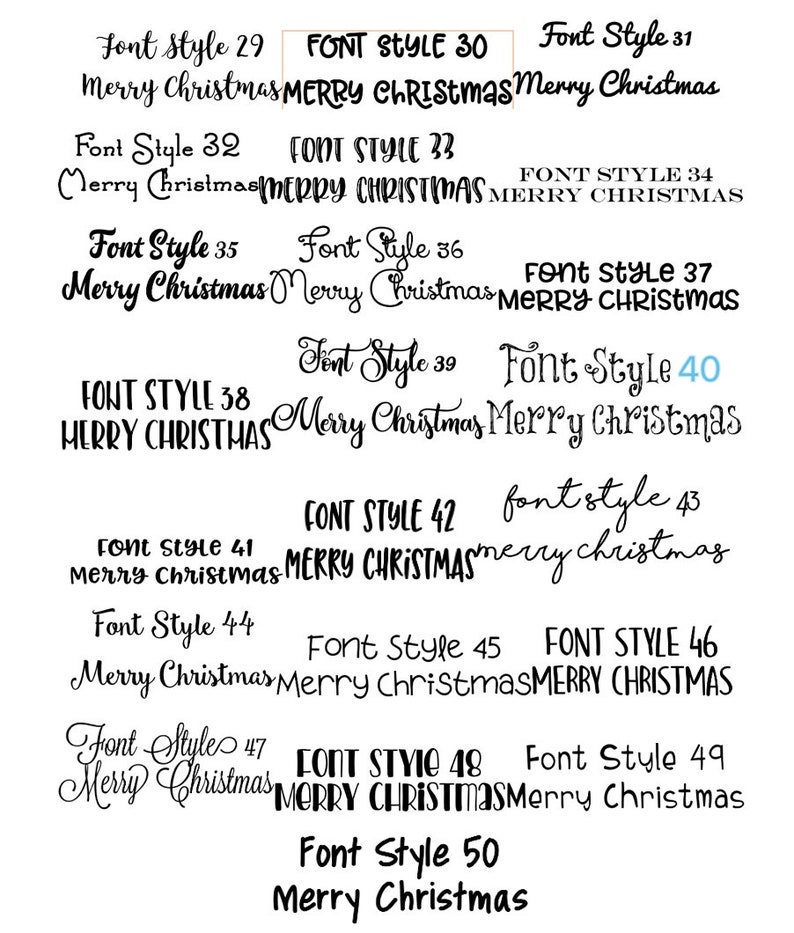 Font Style 29
Merry Christmas
FONT STYLE 30
MERRY CHRISTMAS
Font Style 31
Merry Christmas
Font Style 32
Merry Christmas
FONT STYLE 33
MERRY CHRISTMAS
FONT STYLE 34
MERRY CHRISTMAS
Font Style 35
Merry Christmas
Font Style 36
Merry Christmas
Font Style 37
Merry Christmas
FONT STYLE 38
MERRY CHRISTMAS
Font Style 39
Merry Christmas
Font Style 40
Merry Christmas
Font Style 41
Merry Christmas
FONT STYLE 42
MERRY CHRiSTMAS
font style 43
merry christmas
Font Style 44
Merry Christmas
Font Style 45
Merry Christmas
FONT STYLE 46
MERRY CHRISTMAS
Font Style 47
Merry Christmas
FONT STYlE 48
MERRY CHRiSTMAS
Font Style 49
Merry Christmas
Font Style 50
Merry Christmas